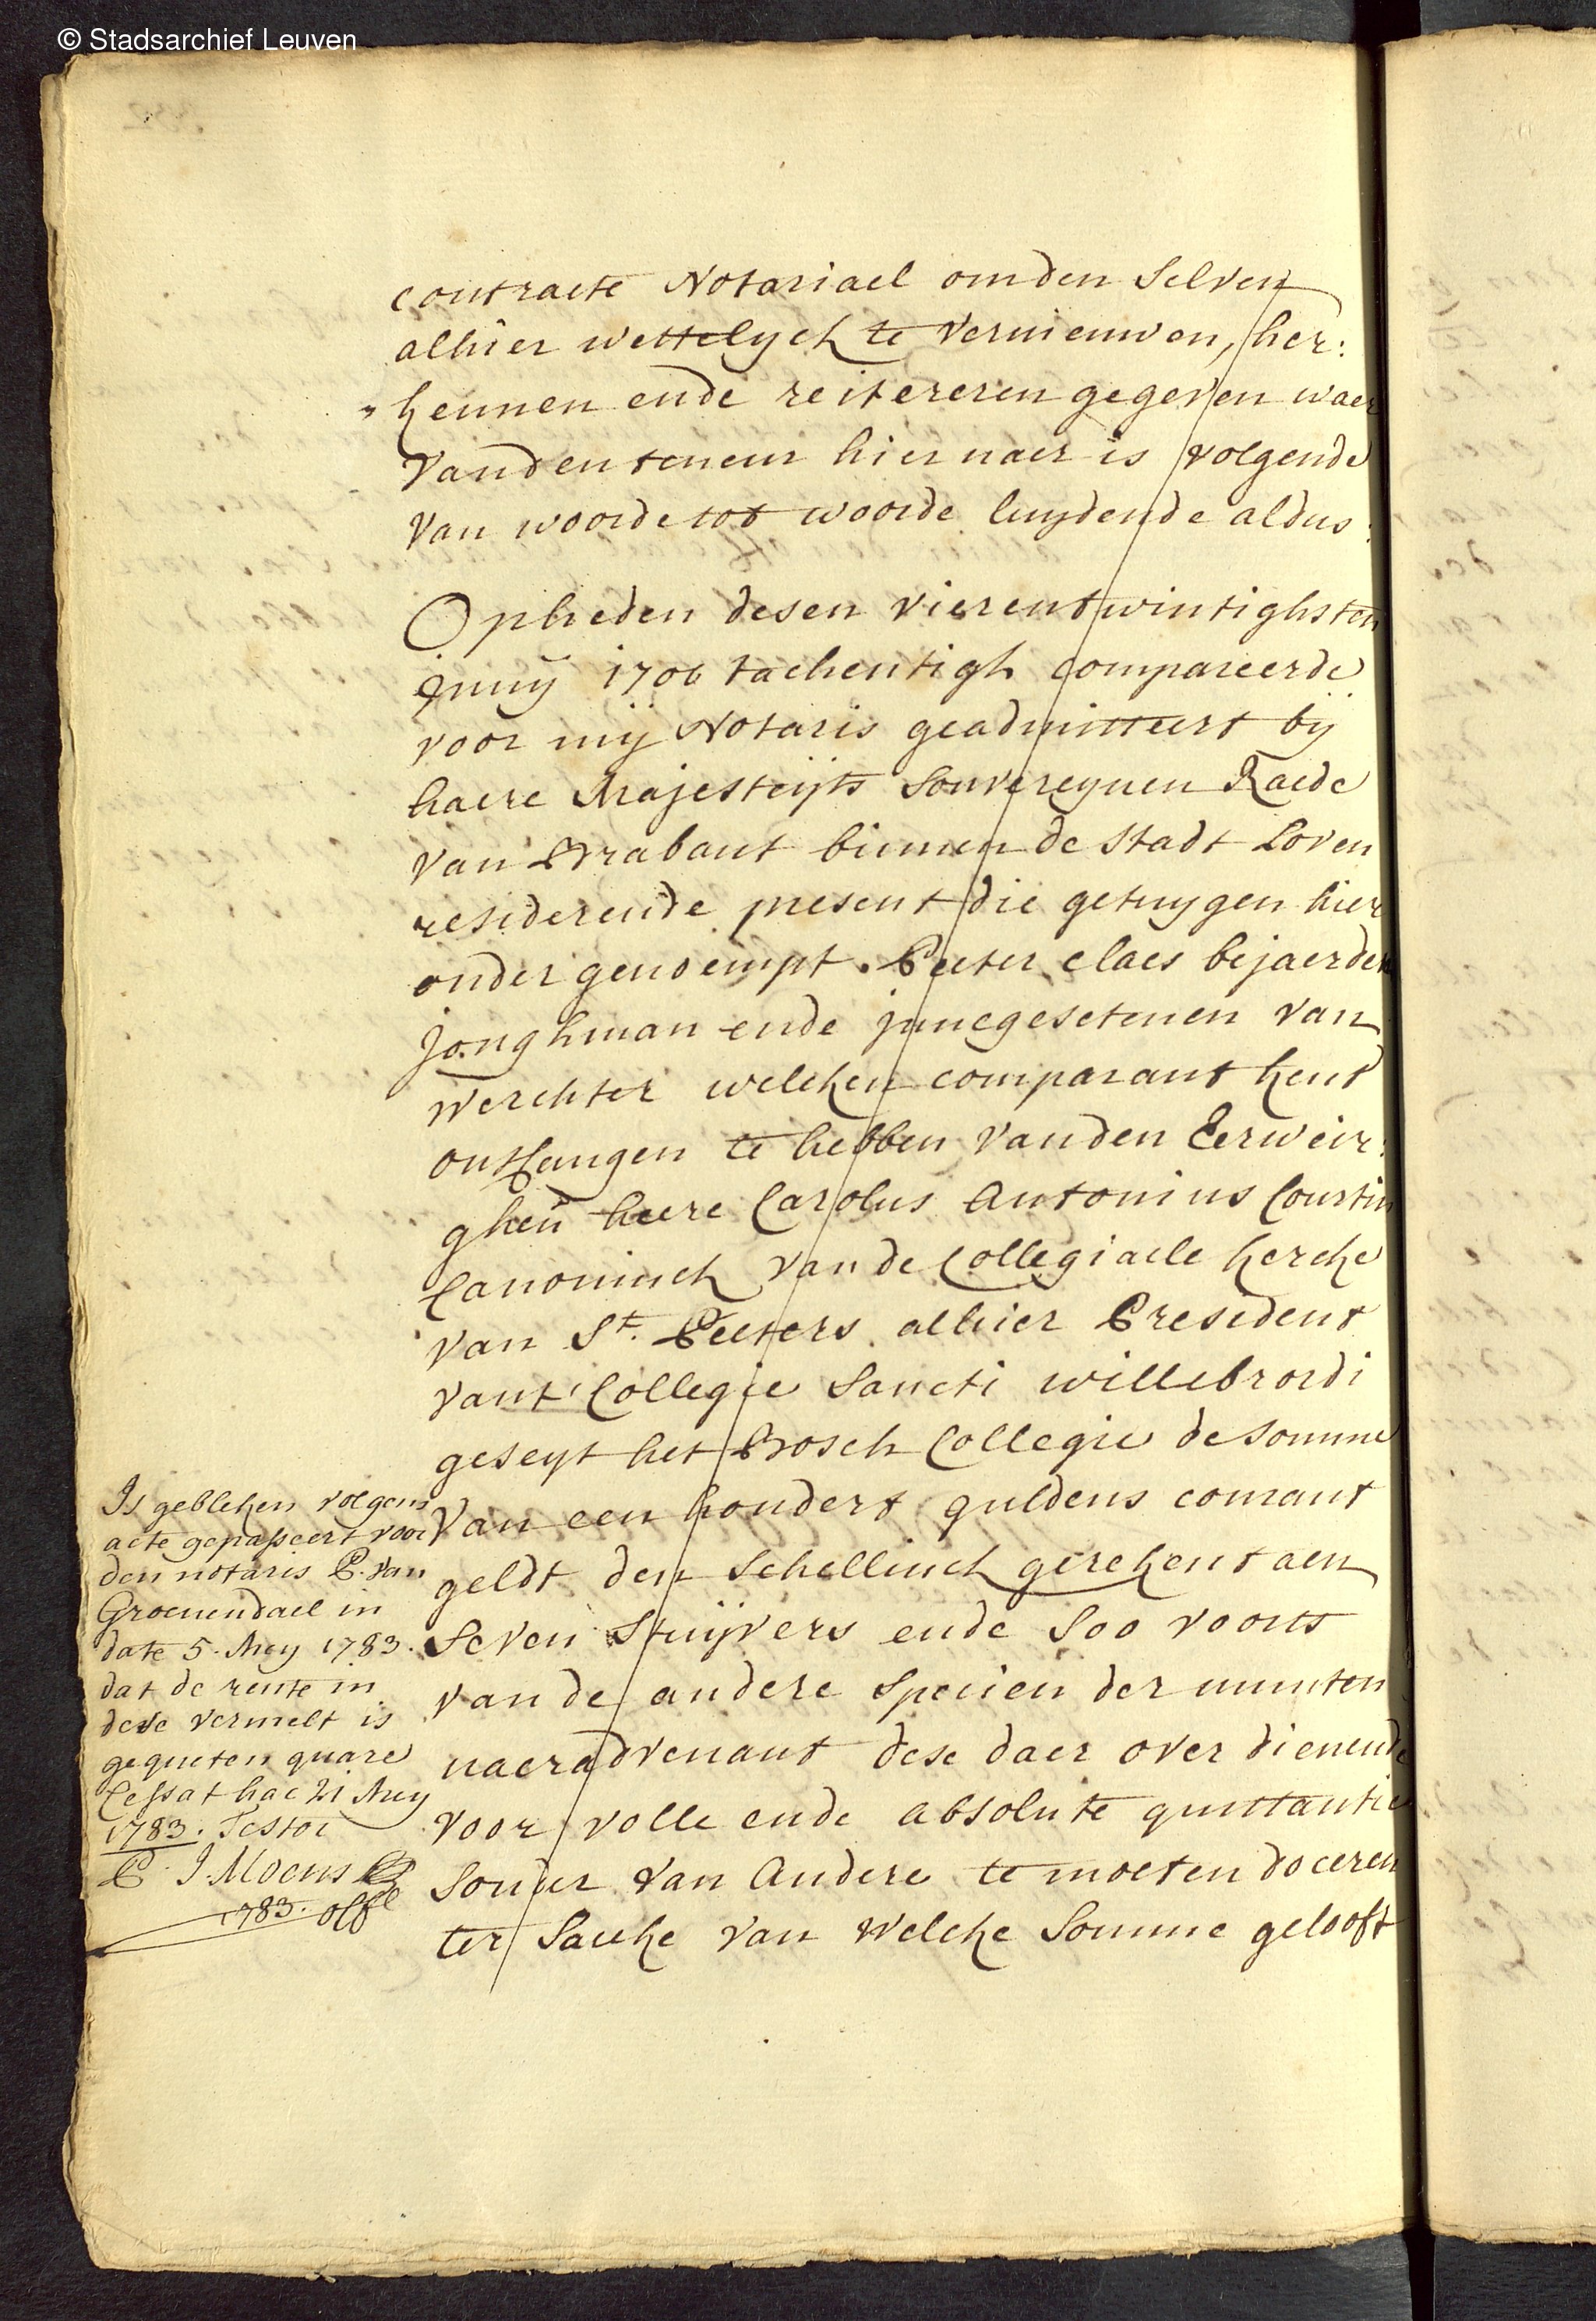 © Stadsarchief Leuven
contracte Notariael om den selven
alhier wettelyck te vernieuwen, her:
kennen ende reitereren gegeven waer
van den teneur hier naer is volgende
van woorde tot woorde luydende aldus:
Op heden desen vierentwintighsten
juny 1700 tachentigh compareerde
voor mij Notaris geadmitteert bij
haere Majesteijts souvereynen Raede
van Brabant binnen de stadt Loven
residerende present die getuygen hier
onder genoempt. Peeter claes bejaerden
jonghman ende innegesetenen van
Werchter welcken comparant kent
ontfangen te hebben van den Eerweir:
ghen heere Carolus Antonius
Canoninck van de Collegiaele kercke
van St. Peeters alhier President
vant Collegie Sancti willebrordi
geseyt het Bosch Collegie de somme
van een hondert guldens courant
geldt den schellinck gerekent aen
seven stuijvers ende soo voorts
van de andere specien der munten
naer advenant dese daer over dienende
voor volle ende absolute quittantie
sonder van andere te moeten doceren
ter saecke van welcke somme gelooft
Is gebleken volgens
acte gepasseert voor
den notaris P. van
Groenendael in
date 5. Mey 1783.
dat de rente in
dese vermelt is
gequeten quare
cessat hac 21 Mey
1783. Testor
P. J. Moens
1783. off